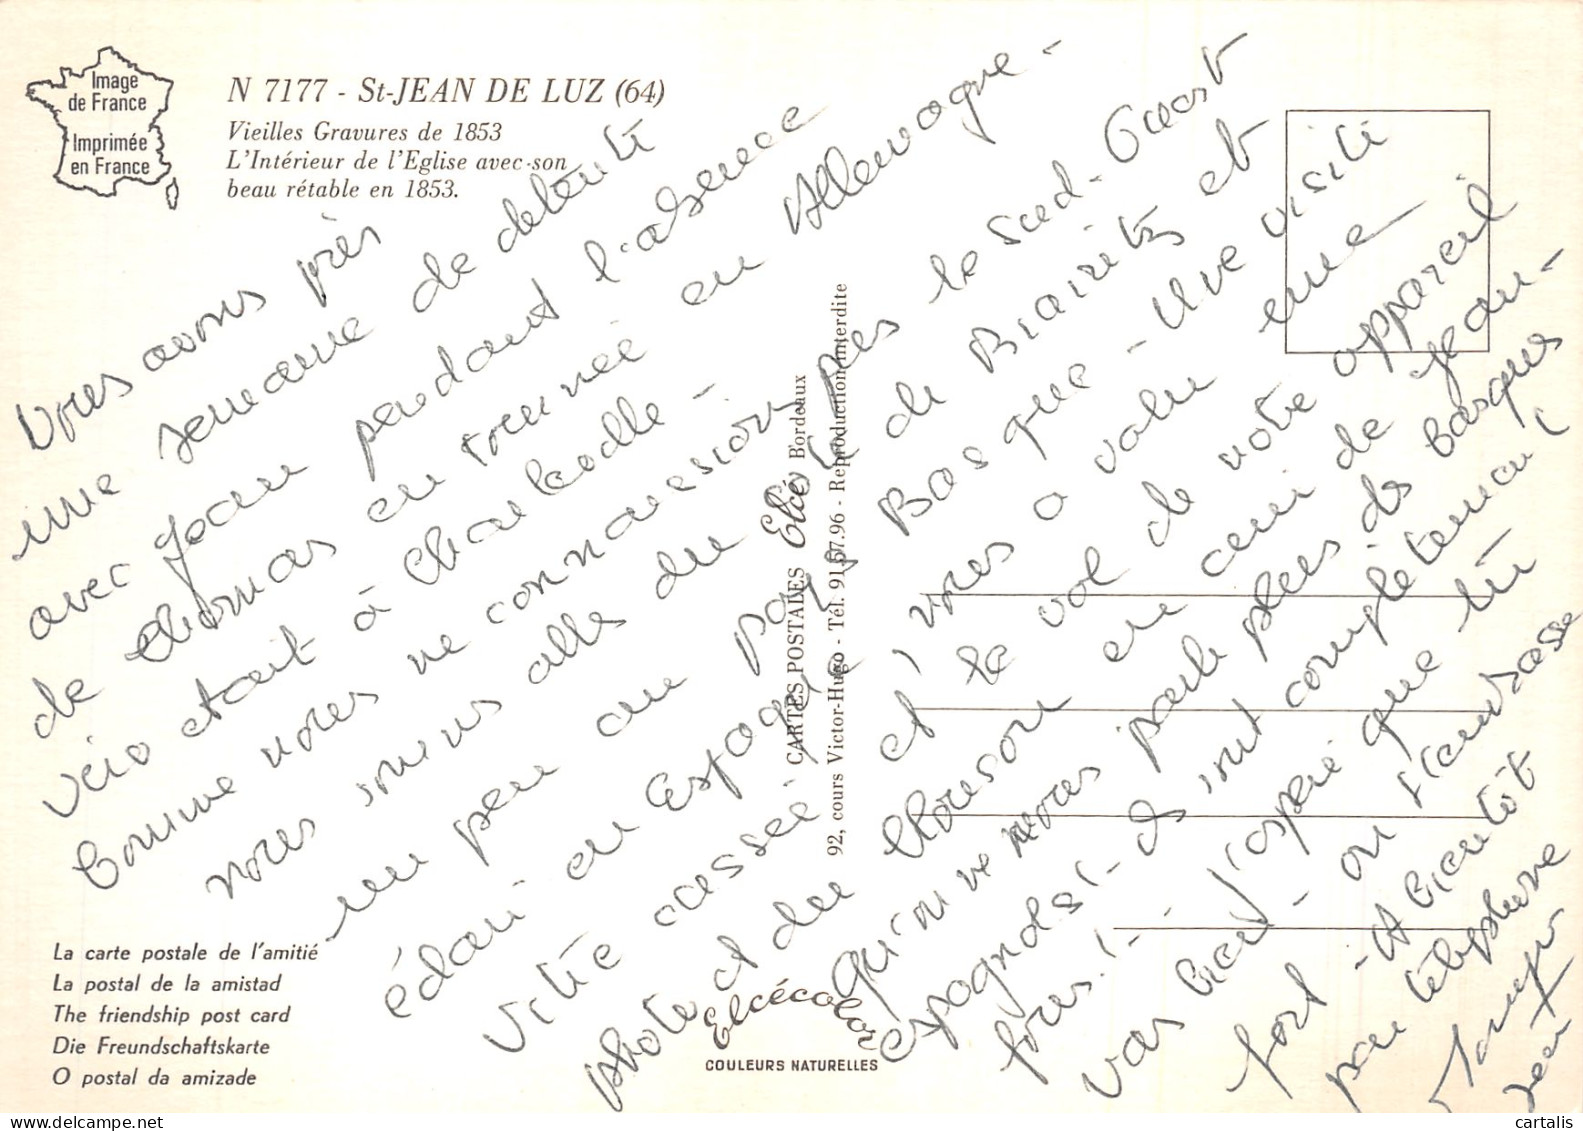 Image
de France
Imprimée
en France
N 7177 - St-JEAN DE LUZ (64)
Vieilles Gravures de 1853
L'Intérieur de l'Eglise avec son
beau rétable en 1853.
Nous avons pris
une semaine de détente
avec Jean pendant l'absence
de Thomas en tournée en Allemagne -
était à
Comme nous ne connaissions pas le Sud-Ouest
nous sommes allés du côté de Biarritz et
un peu au pays Basque - Une visite
éclair en Espagne et
vitre cassée et le vol de votre appareil
photo et du en cuir de Jean -
qu'on ne nous parle plus des basques
espagnols! - Ils sont complètement
fous! - J'espère que tu
vas bien - on t'embrasse
fort - A bientôt
par téléphone
Jean
CARTES POSTALES Elcé Bordeaux
92, cours Victor-Hugo - Tél. 91.57.96 - Reproduction interdite
La carte postale de l'amitié
La postal de la amistad
The friendship post card
Die Freundschaftskarte
O postal da amizade
Elcécolor
COULEURS NATURELLES
cartalis